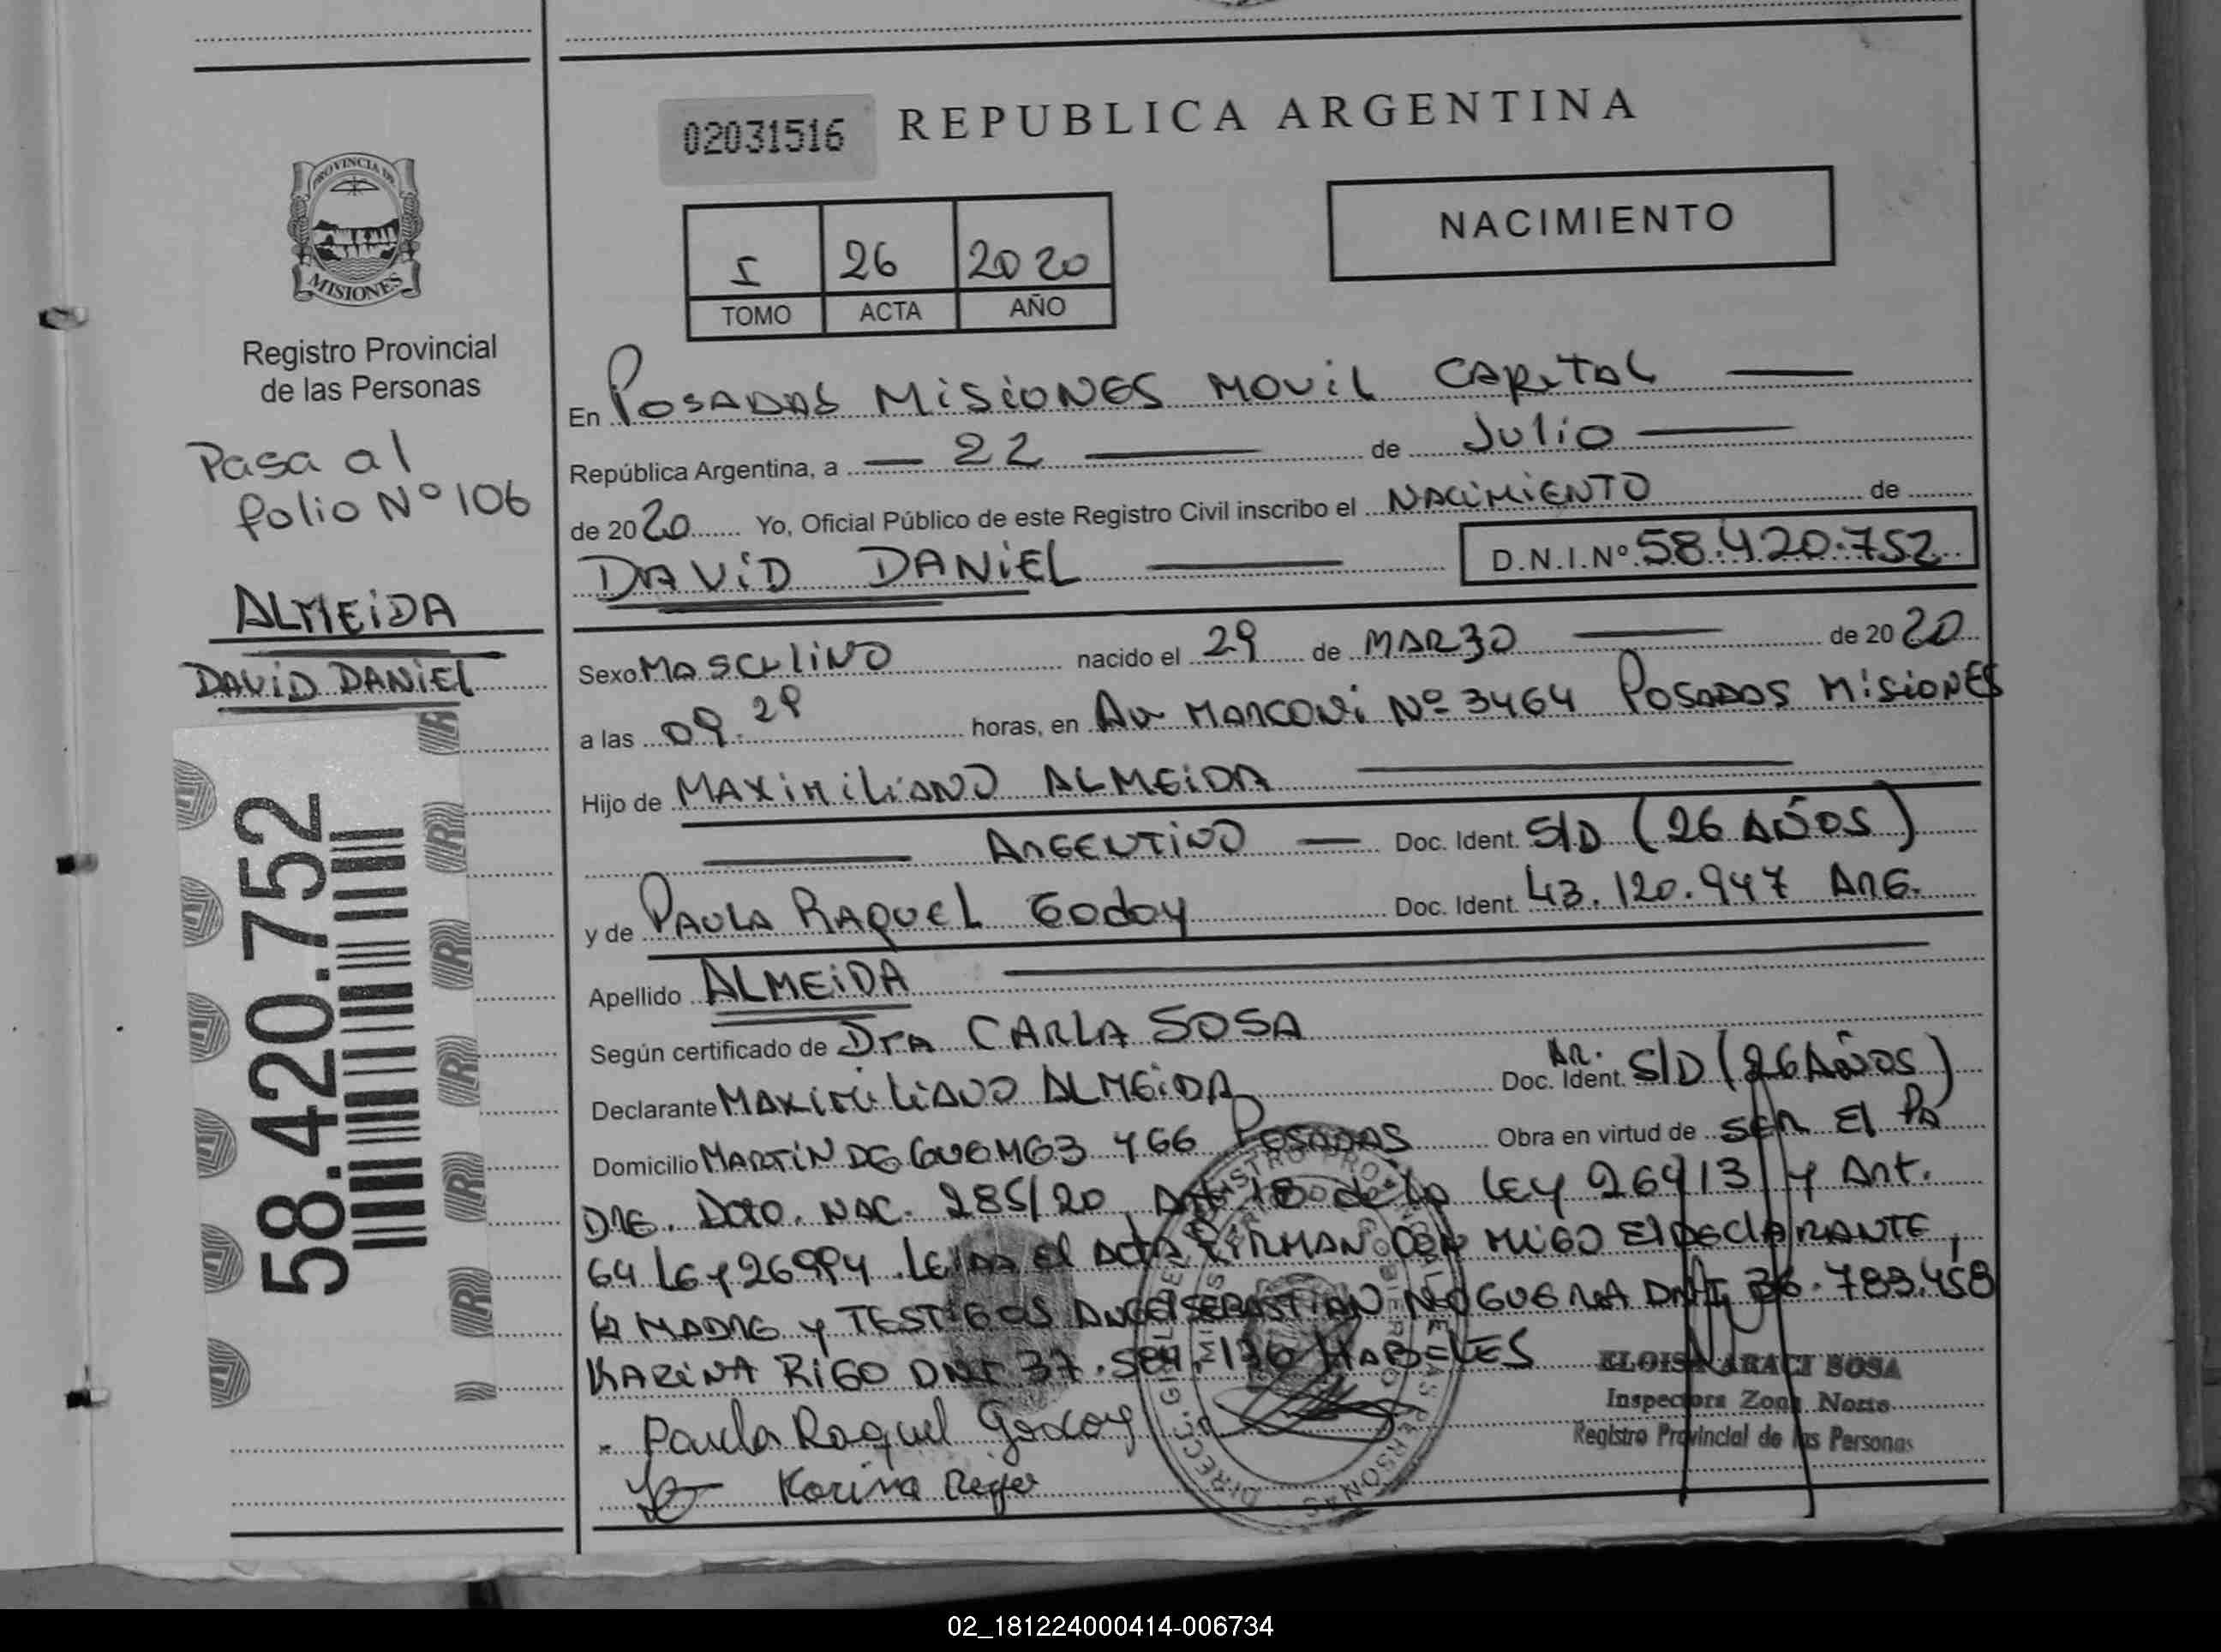 02031516 REPUBLICA ARGENTINA
NACIMIENTO
I 26 2020
TOMO ACTA AÑO
PROVINCIA DE
MISIONES
Registro Provincial
de las Personas
Pasa al
folio Nº 106
ALMEIDA
DAVID DANIEL
58.420.752
En POSADAS MISIONES MOVIL CAPITAL
República Argentina, a 22 de Julio
de 2020 Yo, Oficial Público de este Registro Civil inscribo el NACIMIENTO de
DAVID DANIEL D.N.I.Nº 58.420.752
Sexo MASCULINO nacido el 29 de MARZO de 2020
a las 09.29 horas, en Av MARCONI Nº 3464 POSADAS MISIONES
Hijo de MAXIMILIANO ALMEIDA
ARGENTINO Doc. Ident. S/D (26 AÑOS)
y de PAULA RAQUEL Godoy Doc. Ident. 43.120.947 ARG.
Apellido ALMEIDA
Según certificado de Dra CARLA SOSA
Declarante MAXIMILIANO ALMEIDA Doc. Ident. AR. S/D (26 AÑOS)
Domicilio MARTIN DE GUEMES 466 POSADAS Obra en virtud de SER El PA
DRE. Dcto. NAC. 285/20, Art 18 de la LEY 26413 y Art.
64 LEY 26994. LEIDA El ACTA FIRMAN CON MIGO El DECLARANTE,
LA MADRE y TESTIGOS ANGEL SEBASTIAN NOGUERA DNI 36.783.458
KARINA RIGO DNI 37. HABILES
Paula Raquel Godoy
Karina
ELOISA ARACI SOSA
Inspectora Zona Norte
Registro Provincial de las Personas
02_181224000414-006734